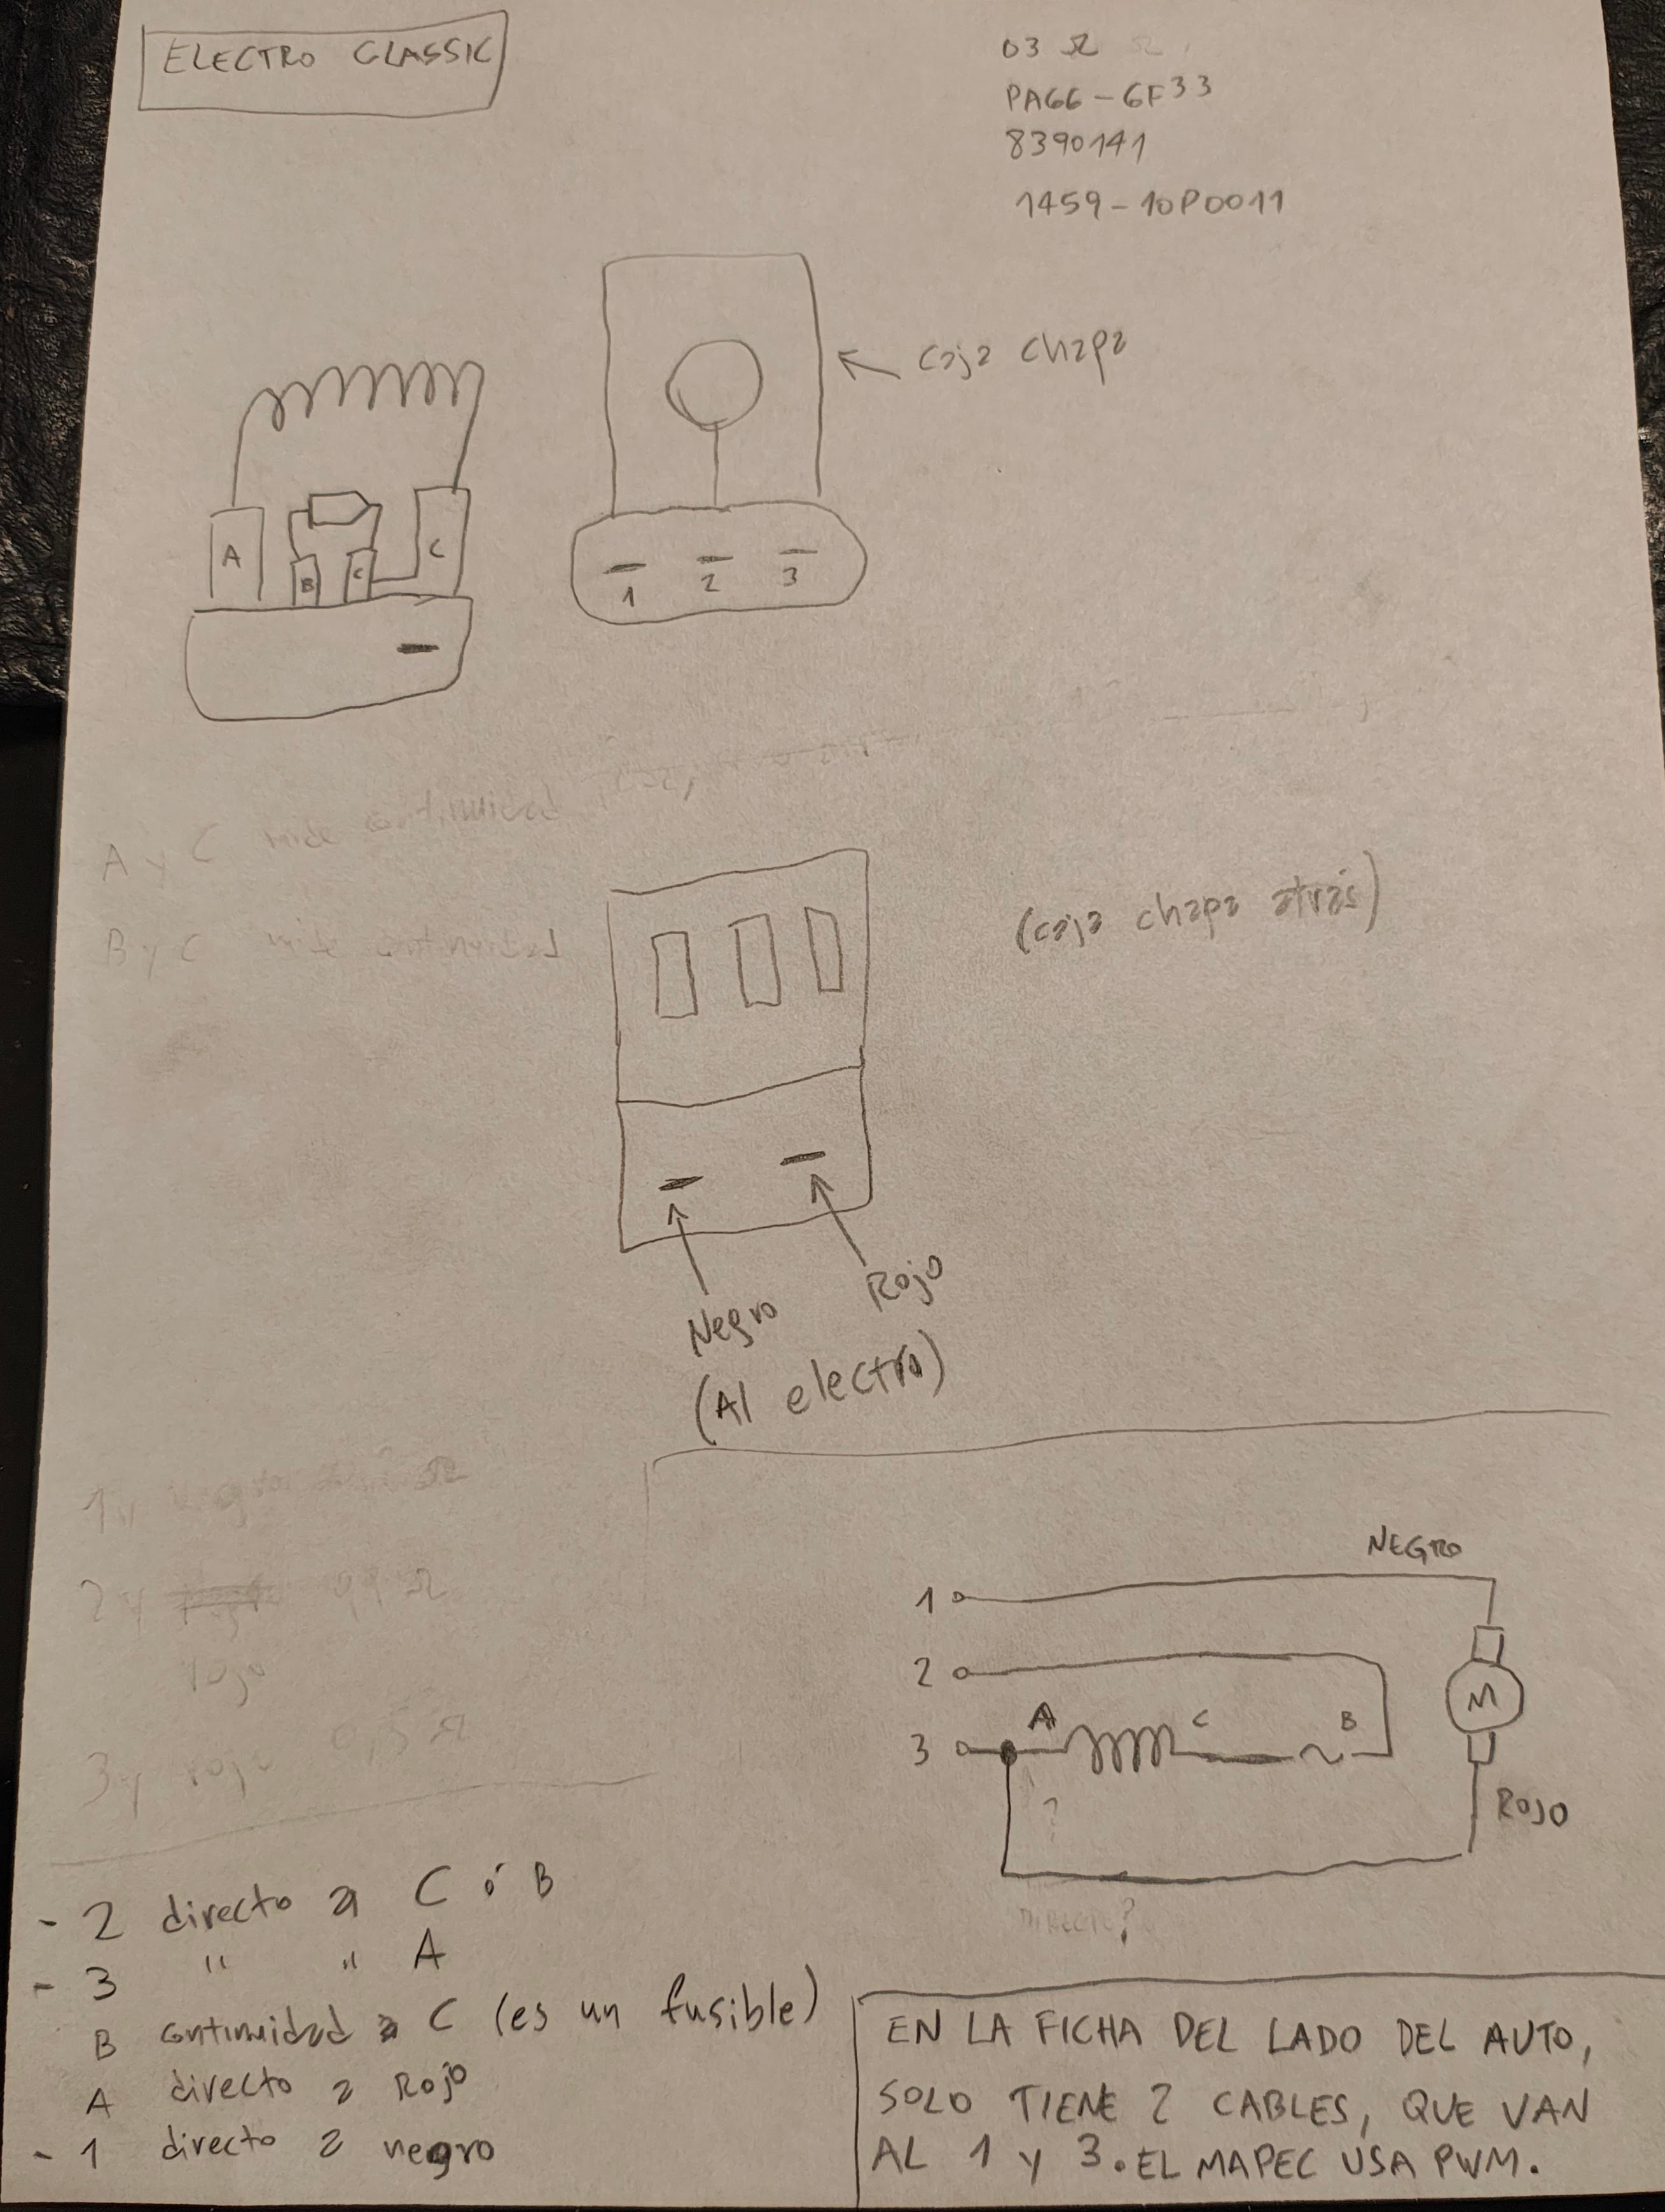 ELECTRO CLASSIC
03 Ω Ω
PA66-GF33
8390141
1459-10P0011
caja chapa
A
B
C
C
1 2 3
A y C mide continuidad
B y C mide continuidad
(caja chapa atrás)
Negro
Rojo
(Al electro)
1 y negro Ω
2 y Ω
rojo
3 y rojo 0,5 Ω
NEGRO
1
2
3
A
C
B
M
?
ROJO
DIRECTO?
- 2 directo a C ó B
- 3 " " A
B continuidad a C (es un fusible)
A directo a Rojo
- 1 directo a negro
EN LA FICHA DEL LADO DEL AUTO,
SOLO TIENE 2 CABLES, QUE VAN
AL 1 y 3. EL MAPEC USA PWM.